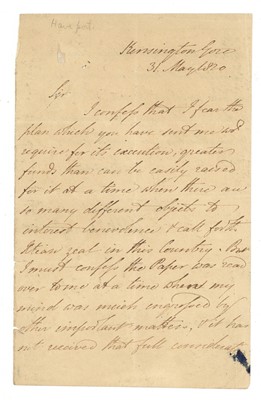 Have just.
Kensington Gore
31 May 1810
Sir
I confess that I fear the
plan which you have sent me wd
require for its execution, greater
funds than can be easily raised
for it at a time when there are
so many different objects to
interest benevolence & call forth
zeal in this Country. But
I must confess the Paper was read
over to me at a time when my
mind was much engrossed by
other important matters, & it has
not received that full considerat